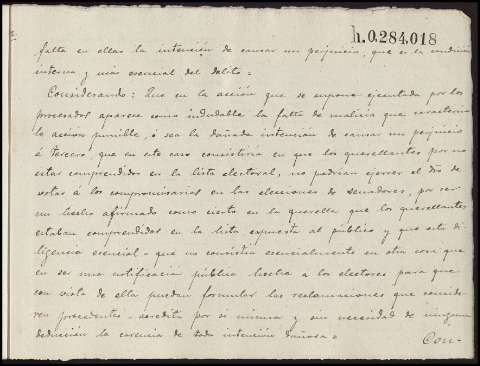 h.0.284.018
falta en ellas la intención de causar un perjuicio, que es la condición
interna y más esencial del delito =
Considerando: Que en la acción que se supone ejecutada por los
procesados aparece como indudable la falta de malicia que caracteriza
la accion punible, ó sea la dañada intención de causar un perjuicio
á tercero, que en este caso consistiria en que los querellantes por no
estar comprendidos en la lista electoral, no podrian ejercer el dro de
votar á los compromisarios en las elecciones de senadores, por ser
un hecho afirmado como cierto en la querella que los querellantes
estaban comprendidos en la lista expuesta al público y que esta di-
ligencia esencial que no consistia esencialmente en otra cosa que
en ser una notificación pública hecha á los electores para que
con vista de ella puedan formular las reclamaciones que conside-
ren procedentes acredita por si misma y sin necesidad de ninguna
deducción la carencia de toda intención dañosa =
Con-